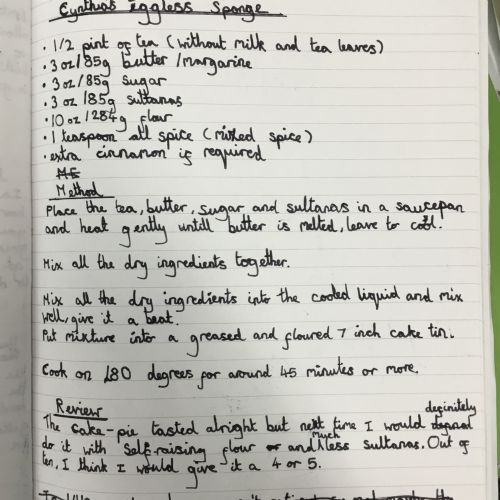 Cynthias Eggless Sponge
• 1/2 pint of tea (without milk and tea leaves)
• 3 oz/85g butter/margarine
• 3 oz/85g sugar
• 3 oz/85g sultanas
• 10 oz/284g flour
• 1 teaspoon all spice (mixed spice)
• extra cinnamon if required
Method
Place the tea, butter, sugar and sultanas in a saucepan
and heat gently untill butter is melted, leave to cool.
Mix all the dry ingredients together.
Mix all the dry ingredients into the cooled liquid and mix
well, give it a beat.
Put mixture into a greased and floured 7 inch cake tin.
Cook on 180 degrees for around 45 minutes or more.
Review
definitely
The cake-pie tasted alright but next time I would
do it with self-raising flour and much less sultanas. Out of
ten, I think I would give it a 4 or 5.